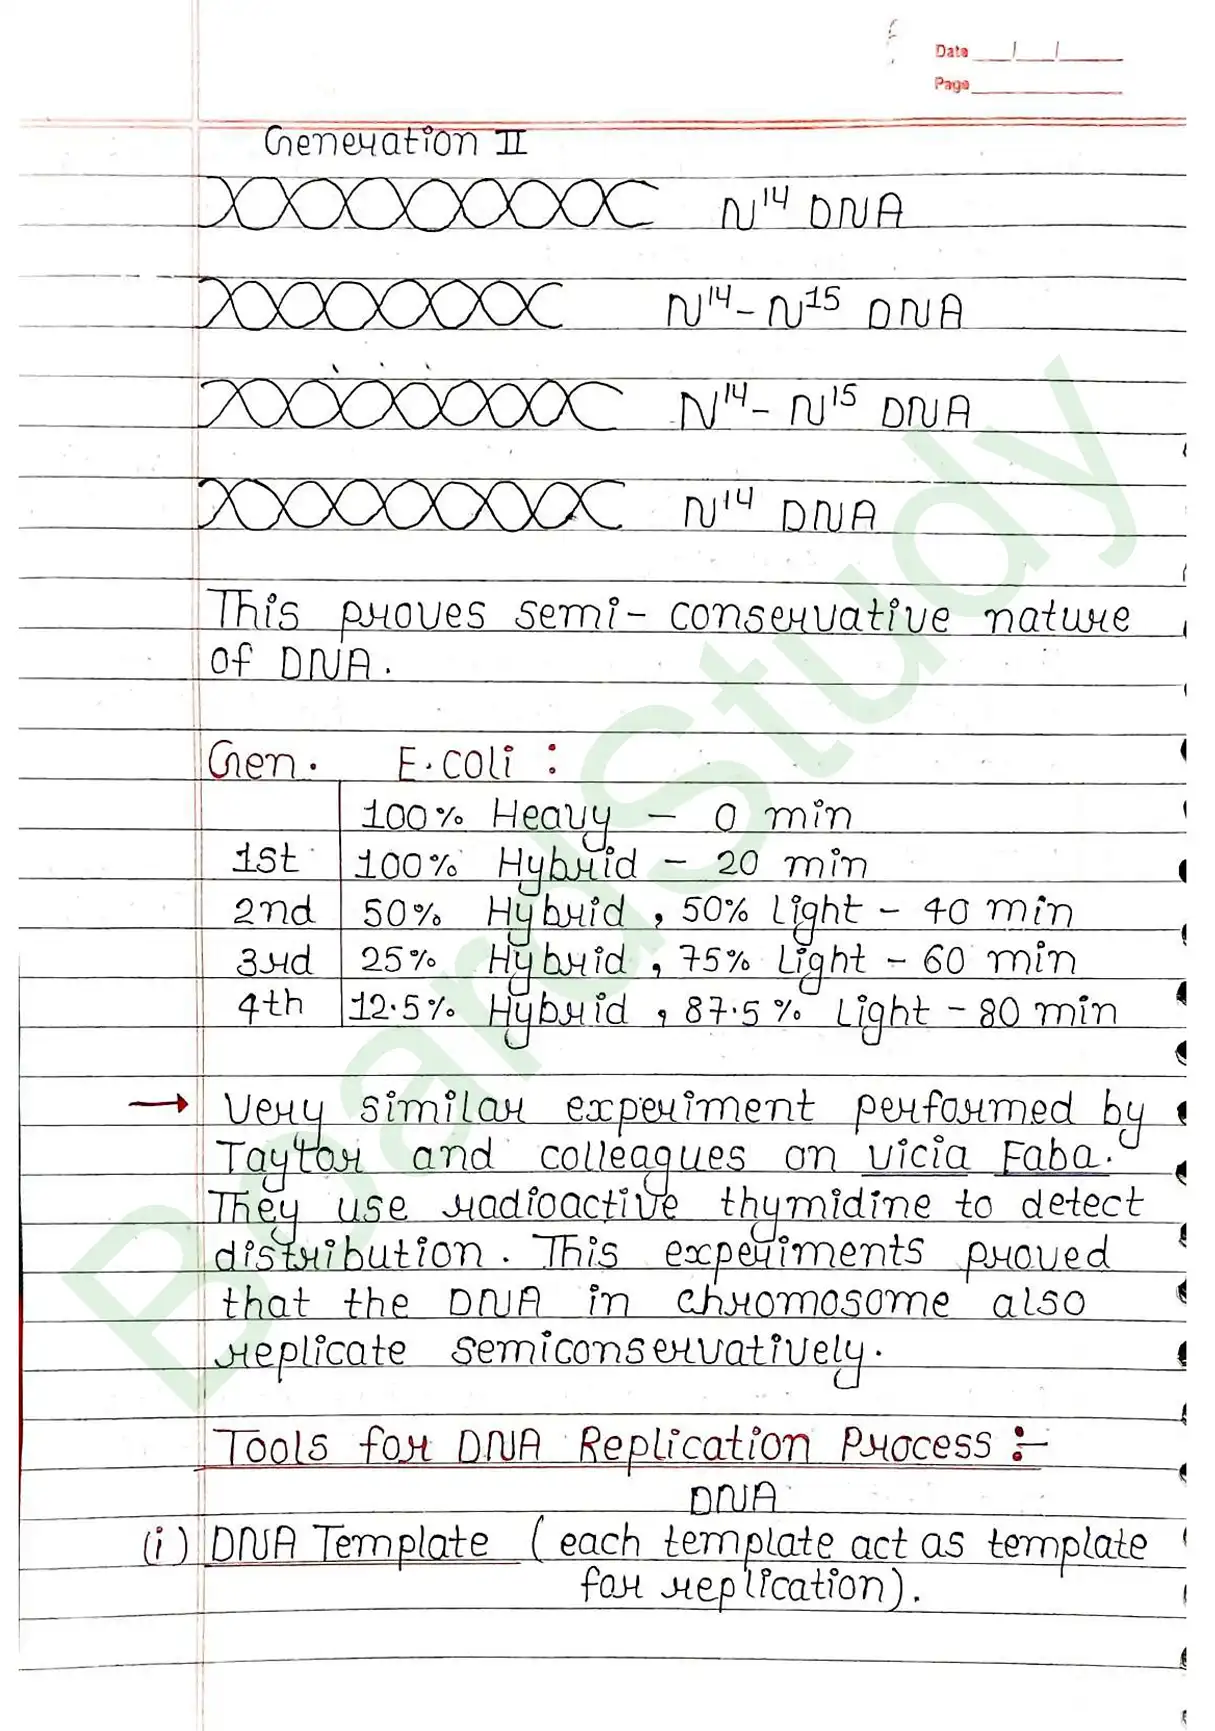 Date __/__/____
Page
Generation II
N¹⁴ DNA
N¹⁴ - N¹⁵ DNA
N¹⁴ - N¹⁵ DNA
N¹⁴ DNA
This proves semi-conservative nature
of DNA.
Gen. E.coli :
100% Heavy - 0 min
1st 100% Hybrid - 20 min
2nd 50% Hybrid , 50% Light - 40 min
3rd 25% Hybrid , 75% Light - 60 min
4th 12.5% Hybrid , 87.5% Light - 80 min
→ Very similar experiment performed by
Taytor and colleagues on vicia Faba.
They use radioactive thymidine to detect
distribution. This experiments proved
that the DNA in chromosome also
replicate semiconservatively.
Tools for DNA Replication Process :-
DNA
(i) DNA Template ( each template act as template
for replication).
BoardStudy